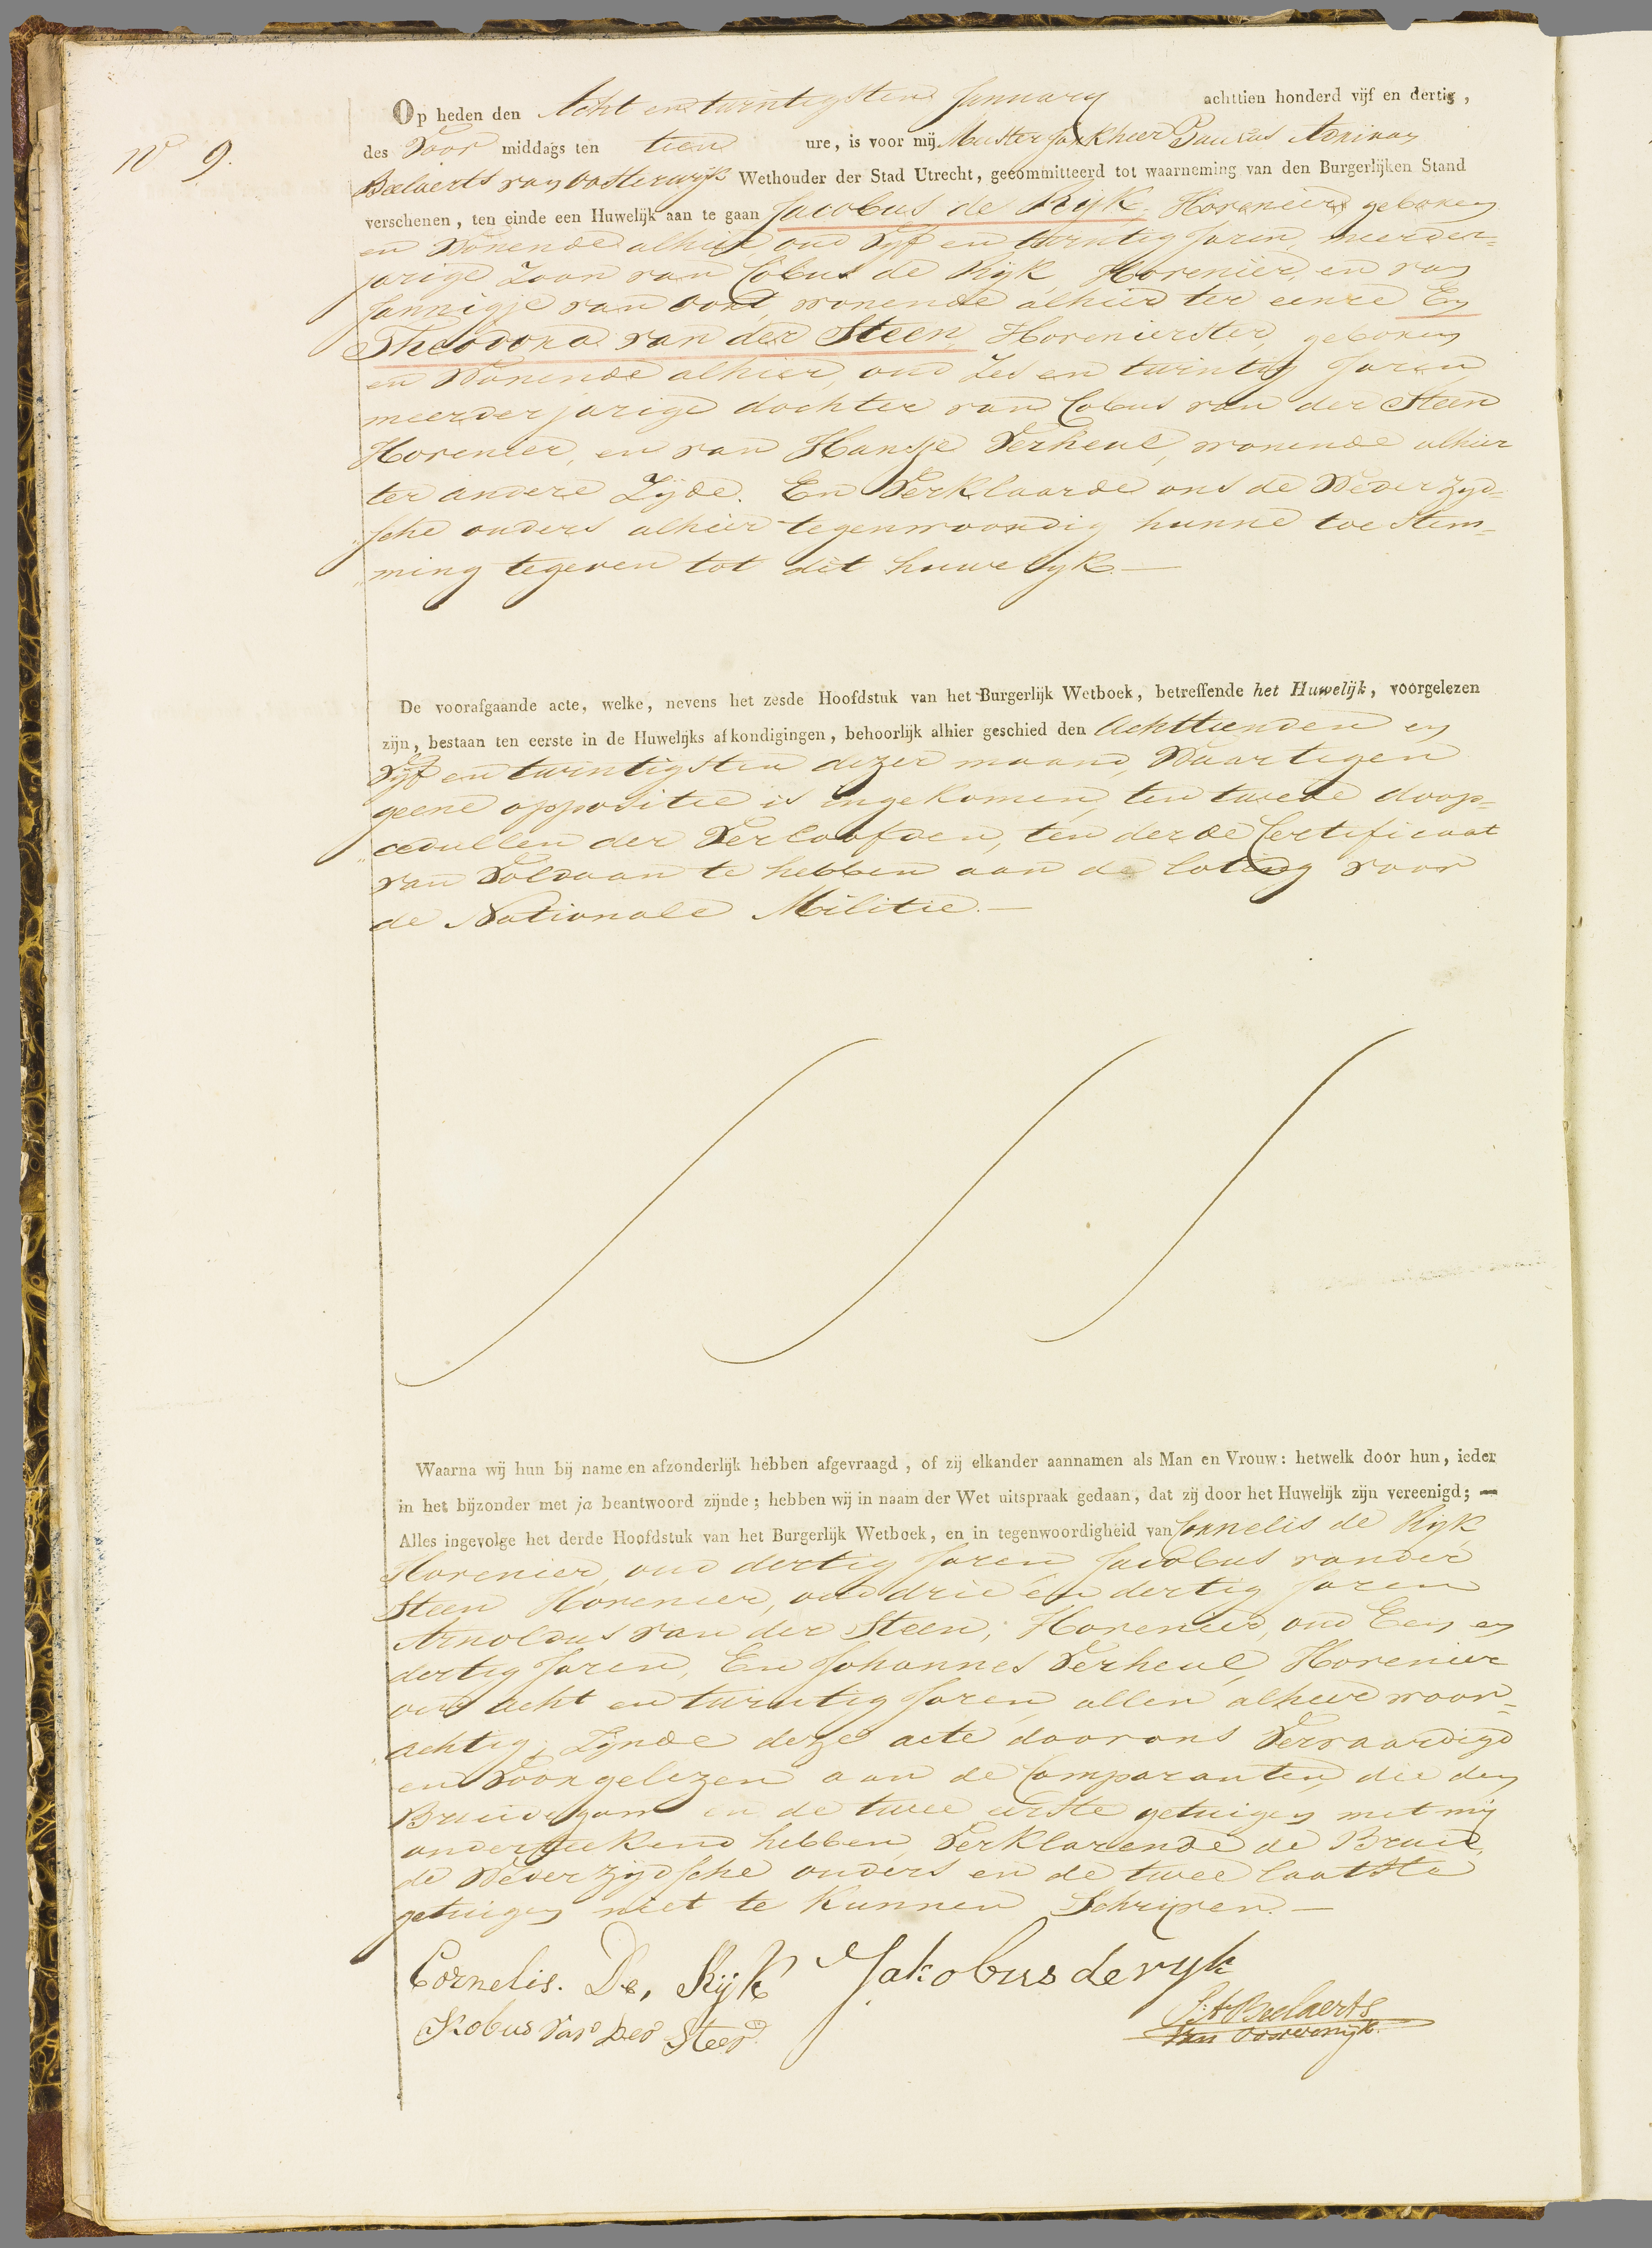 No 9.
Op heden den Acht en twintigsten January achttien honderd vijf en dertig,
des Voor middags ten tien ure, is voor mij Meester Jonkheer Paulus Adriaan
Beelaerts van Oosterwijk Wethouder der Stad Utrecht, gecommitteerd tot waarneming van den Burgerlijken Stand
verschenen, ten einde een Huwelijk aan te gaan Jacobus de Rijk, Hovenier, geboren
en Wonende alhier oud Vijf en twintig Jaren, meerder=
jarige Zoon van Cobus de Rijk, Hovenier, en van
Jannigje van Oort, wonende alhier ter eenre En
Theodora van der Steen, Hovenierster, geboren
en Wonende alhier, oud Zes en twintig Jaren
meerderjarige dochter van Cobus van der Steen
Hovenier, en van Hansje Verheul, wonende alhier
ter andere Zijde. En Verklaarde ons de Wederzijd=
sche ouders alhier tegenwoordig hunne toe stem=
ming tegeven tot dit huwelijk.—
De voorafgaande acte, welke, nevens het zesde Hoofdstuk van het Burgerlijk Wetboek, betreffende het Huwelijk, voorgelezen
zijn, bestaan ten eerste in de Huwelijks afkondigingen, behoorlijk alhier geschied den Achttienden en
Vijf en twintigsten dezer maand, Waartegen
geene oppositie is ingekomen, ten tweede doop=
cedullen der Verloofden, ten derde Certificaat
van Voldaan te hebben aan de loting voor
de Nationale Militie.—
Waarna wij hun bij name en afzonderlijk hebben afgevraagd, of zij elkander aannamen als Man en Vrouw: hetwelk door hun, ieder
in het bijzonder met ja beantwoord zijnde; hebben wij in naam der Wet uitspraak gedaan, dat zij door het Huwelijk zijn vereenigd; —
Alles ingevolge het derde Hoofdstuk van het Burgerlijk Wetboek, en in tegenwoordigheid van Cornelis de Rijk
Hovenier, oud dertig Jaren Jacobus vander
Steen Hovenier, oud drie en dertig Jaren
Arnoldus van der Steen, Hovenier, oud Een en
dertig Jaren, En Johannes Verheul, Hovenier
oud acht en twintig Jaren, allen alhier woon=
achtig; Zijnde deze acte doorons Vervaardigd
en Voorgelezen aan de Comparanten, die den
Bruidegom en de twee eerste getuigen met mij
onderteekend hebben, Verklarende de Bruid,
de Wederzijdsche ouders en de twee laatste
getuigen niet te kunnen Schrijven.—
Cornelis. De, Rijk Jakobus de ryk
Kobus Van Der Steen P. A. Beelaerts
Van Oosterwijk.